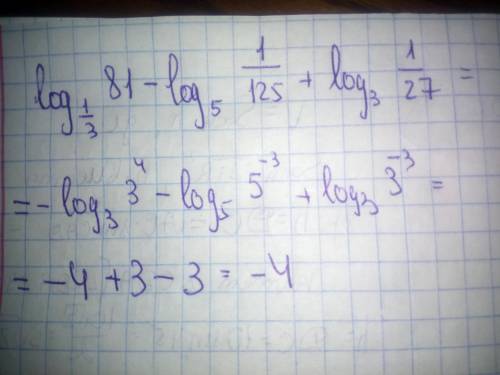 log_{1/3} 81 - log_5 1/125 + log_3 1/27 =
= -log_3 3^4 - log_5 5^{-3} + log_3 3^{-3} =
= -4 + 3 - 3 = -4